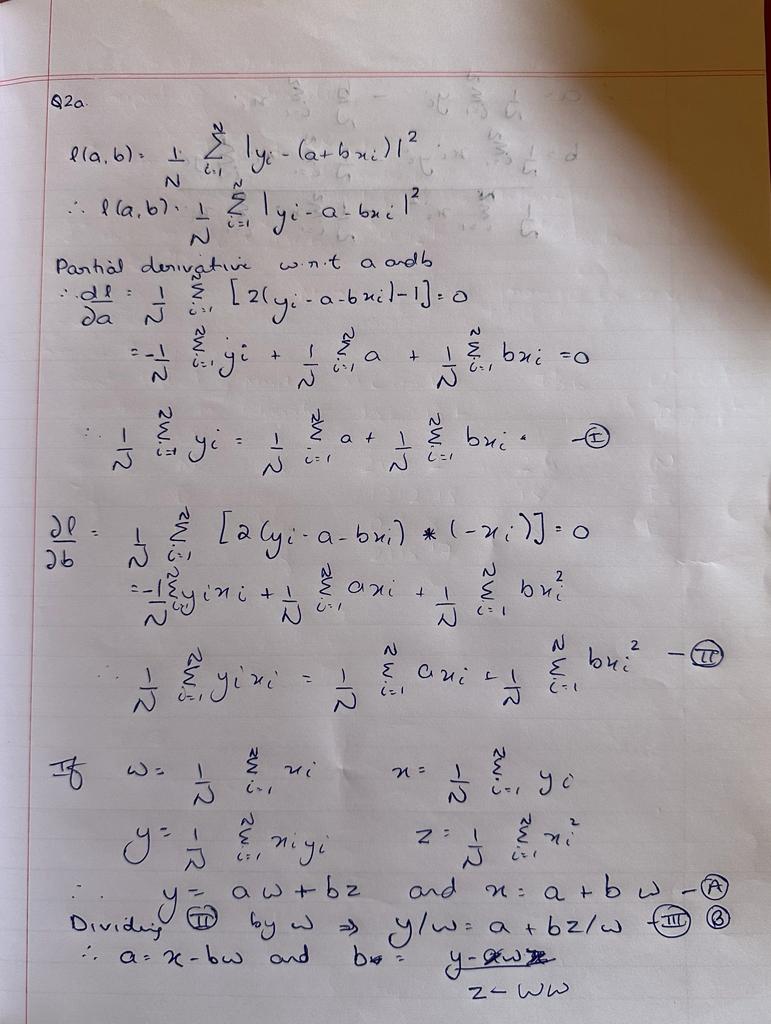 Q2a.
l(a,b) = 1/N Σ_{i=1}^{N} |yi - (a+bxi)|²
∴ l(a,b) = 1/N Σ_{i=1}^{N} |yi - a - bxi|²
Partial derivative w.r.t a and b
∴ ∂l/∂a = 1/N Σ_{i=1}^{N} [2(yi - a - bxi) - 1] = 0
= -1/N Σ_{i=1}^{N} yi + 1/N Σ_{i=1}^{N} a + 1/N Σ_{i=1}^{N} bxi = 0
∴ 1/N Σ_{i=1}^{N} yi = 1/N Σ_{i=1}^{N} a + 1/N Σ_{i=1}^{N} bxi. - Ⓘ
∂l/∂b = 1/N Σ_{i=1}^{N} [2(yi - a - bxi) * (-xi)] = 0
= -1/N Σ_{i=1}^{N} yixi + 1/N Σ_{i=1}^{N} axi + 1/N Σ_{i=1}^{N} bxi²
∴ 1/N Σ_{i=1}^{N} yixi = 1/N Σ_{i=1}^{N} axi + 1/N Σ_{i=1}^{N} bxi² - (II)
If w = 1/N Σ_{i=1}^{N} xi x = 1/N Σ_{i=1}^{N} yi
y = 1/N Σ_{i=1}^{N} xiyi z = 1/N Σ_{i=1}^{N} xi²
∴ y = aw + bz and x = a + bw - (A)
Dividing (II) by w ⇒ y/w = a + bz/w - (III) (B)
∴ a = x - bw and b = (y - wx)/(z - ww)